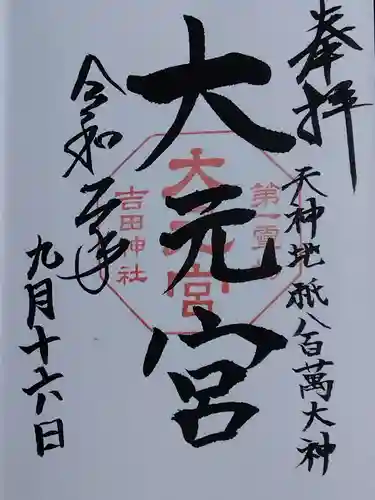 奉拝
天神地祇八百萬大神
大元宮
第一霊
大元宮
吉田神社
令和五年
九月十六日